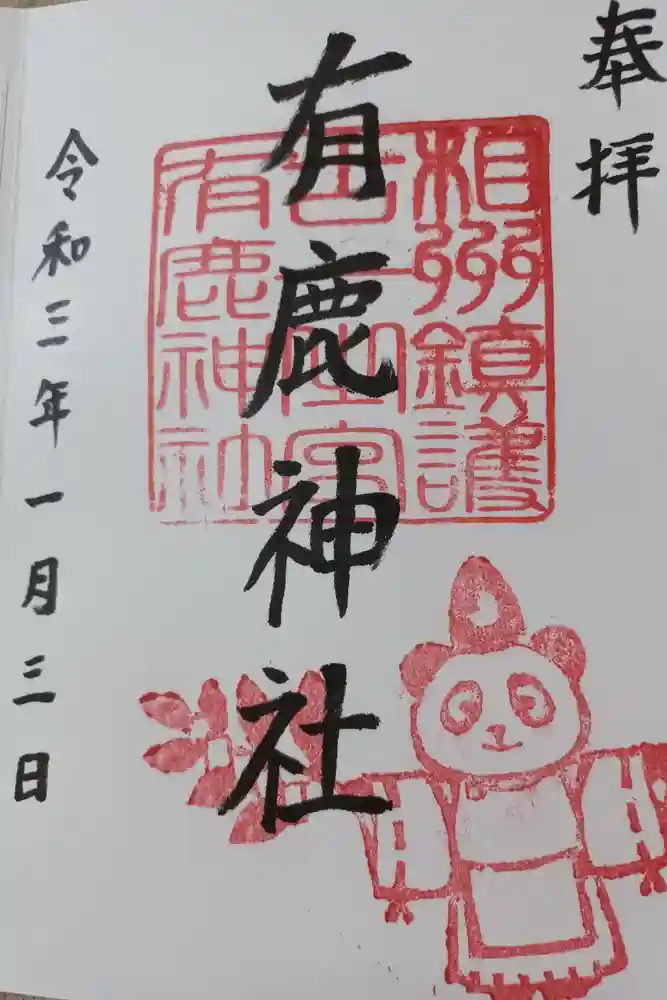 奉拝
相州鎮護
有鹿神社
有鹿神社
令和三年一月三日